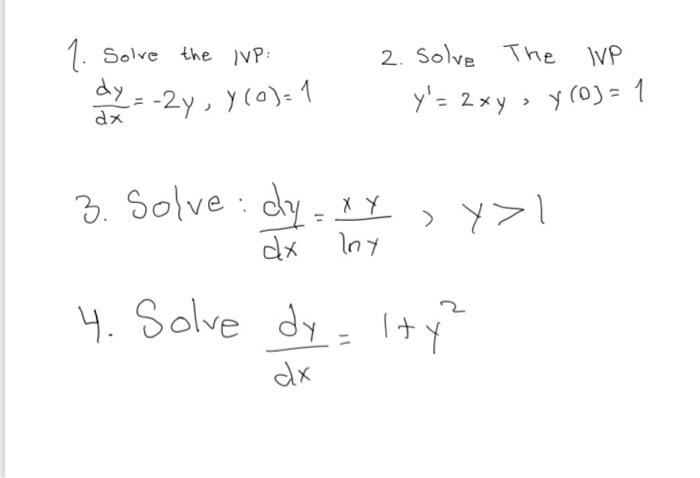 1. Solve the IVP:
dy/dx = -2y, y(0)=1
2. Solve The IVP
y' = 2xy, y(0)=1
3. Solve: dy/dx = xy/lny, y>1
4. Solve dy/dx = 1+y²